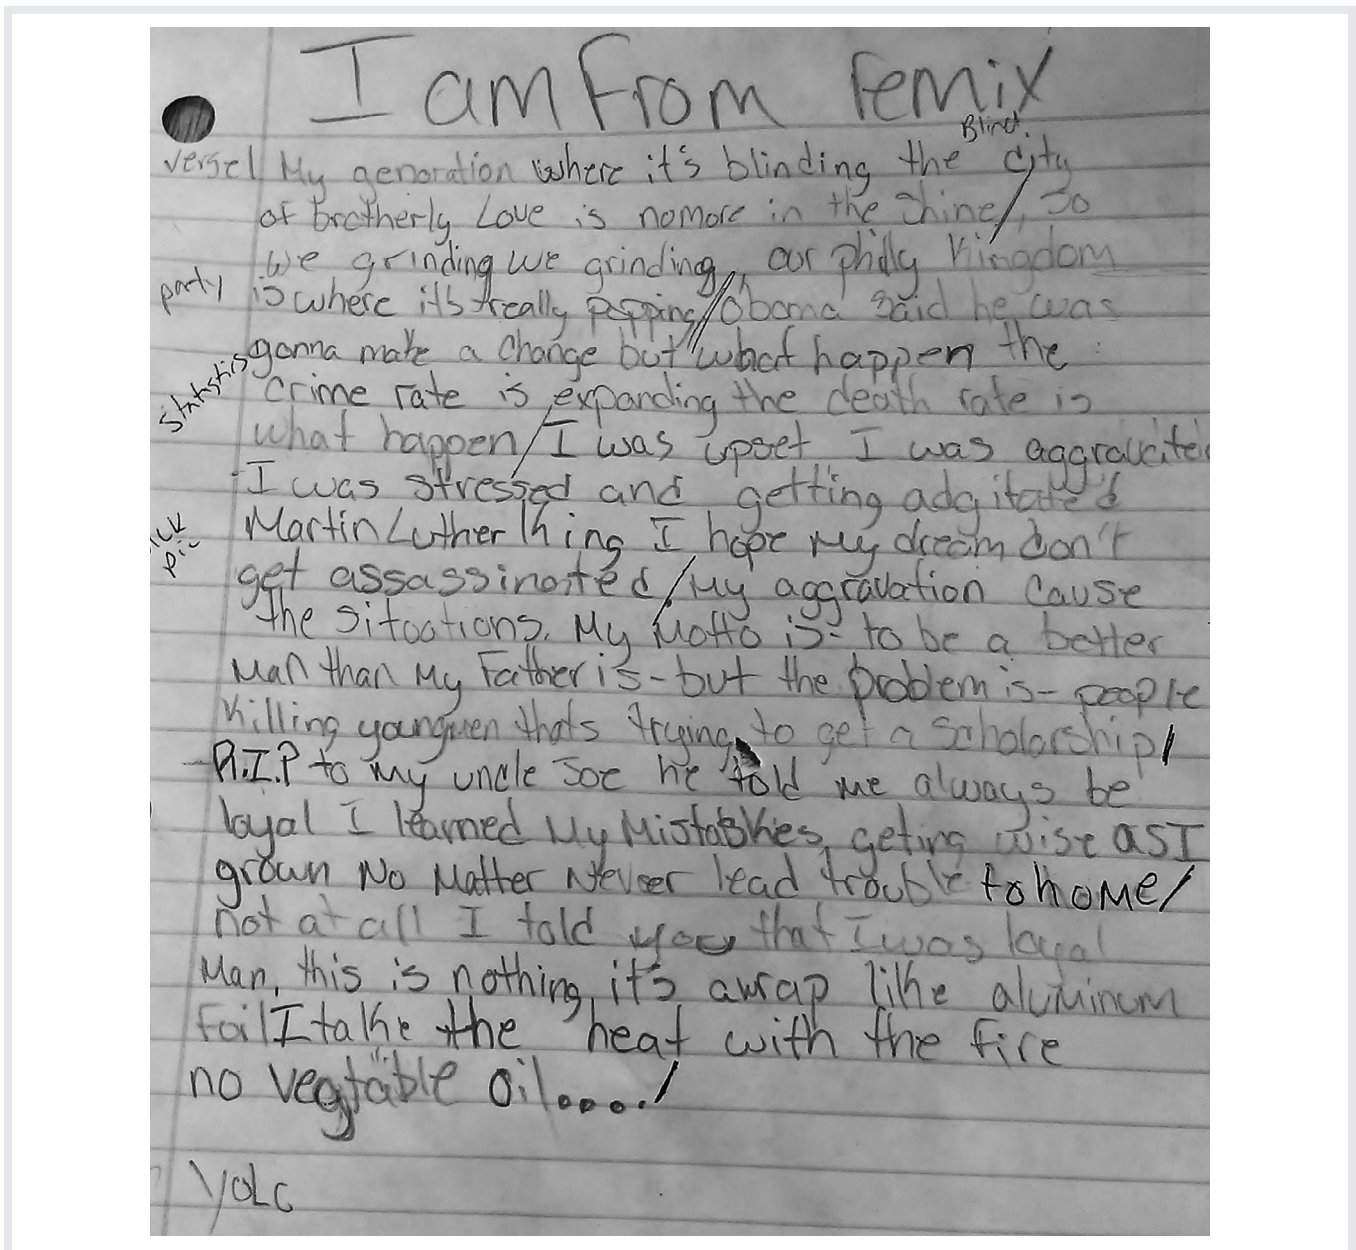 I am From remix
Blind
verse1 My genoration where it's blinding the city
of brotherly Love is nomore in the shine/, So
we grinding we grinding, our philly Kingdom
party is where it's really popping/Obama said he was
gonna make a change but what happen the
statistis crime rate is expanding the death rate is
what happen/I was upset I was aggravated
-I was stressed and getting adgitated
Martin Luther King I hope my dream don't
pic
get assassinated/My aggravation cause
the situations. My Motto is- to be a better
Man than My Father is- but the problem is- people
Killing youngmen thats trying to get a Scholarship/
-R.I.P to my uncle Joe he told me always be
loyal I learned My Mistakes, geting wise as I
grown No Matter Never lead trouble to home/
not at all I told you that I was loyal
Man, this is nothing, it's awrap like aluminum
foil I take the heat with the fire
no vegtable oil..../